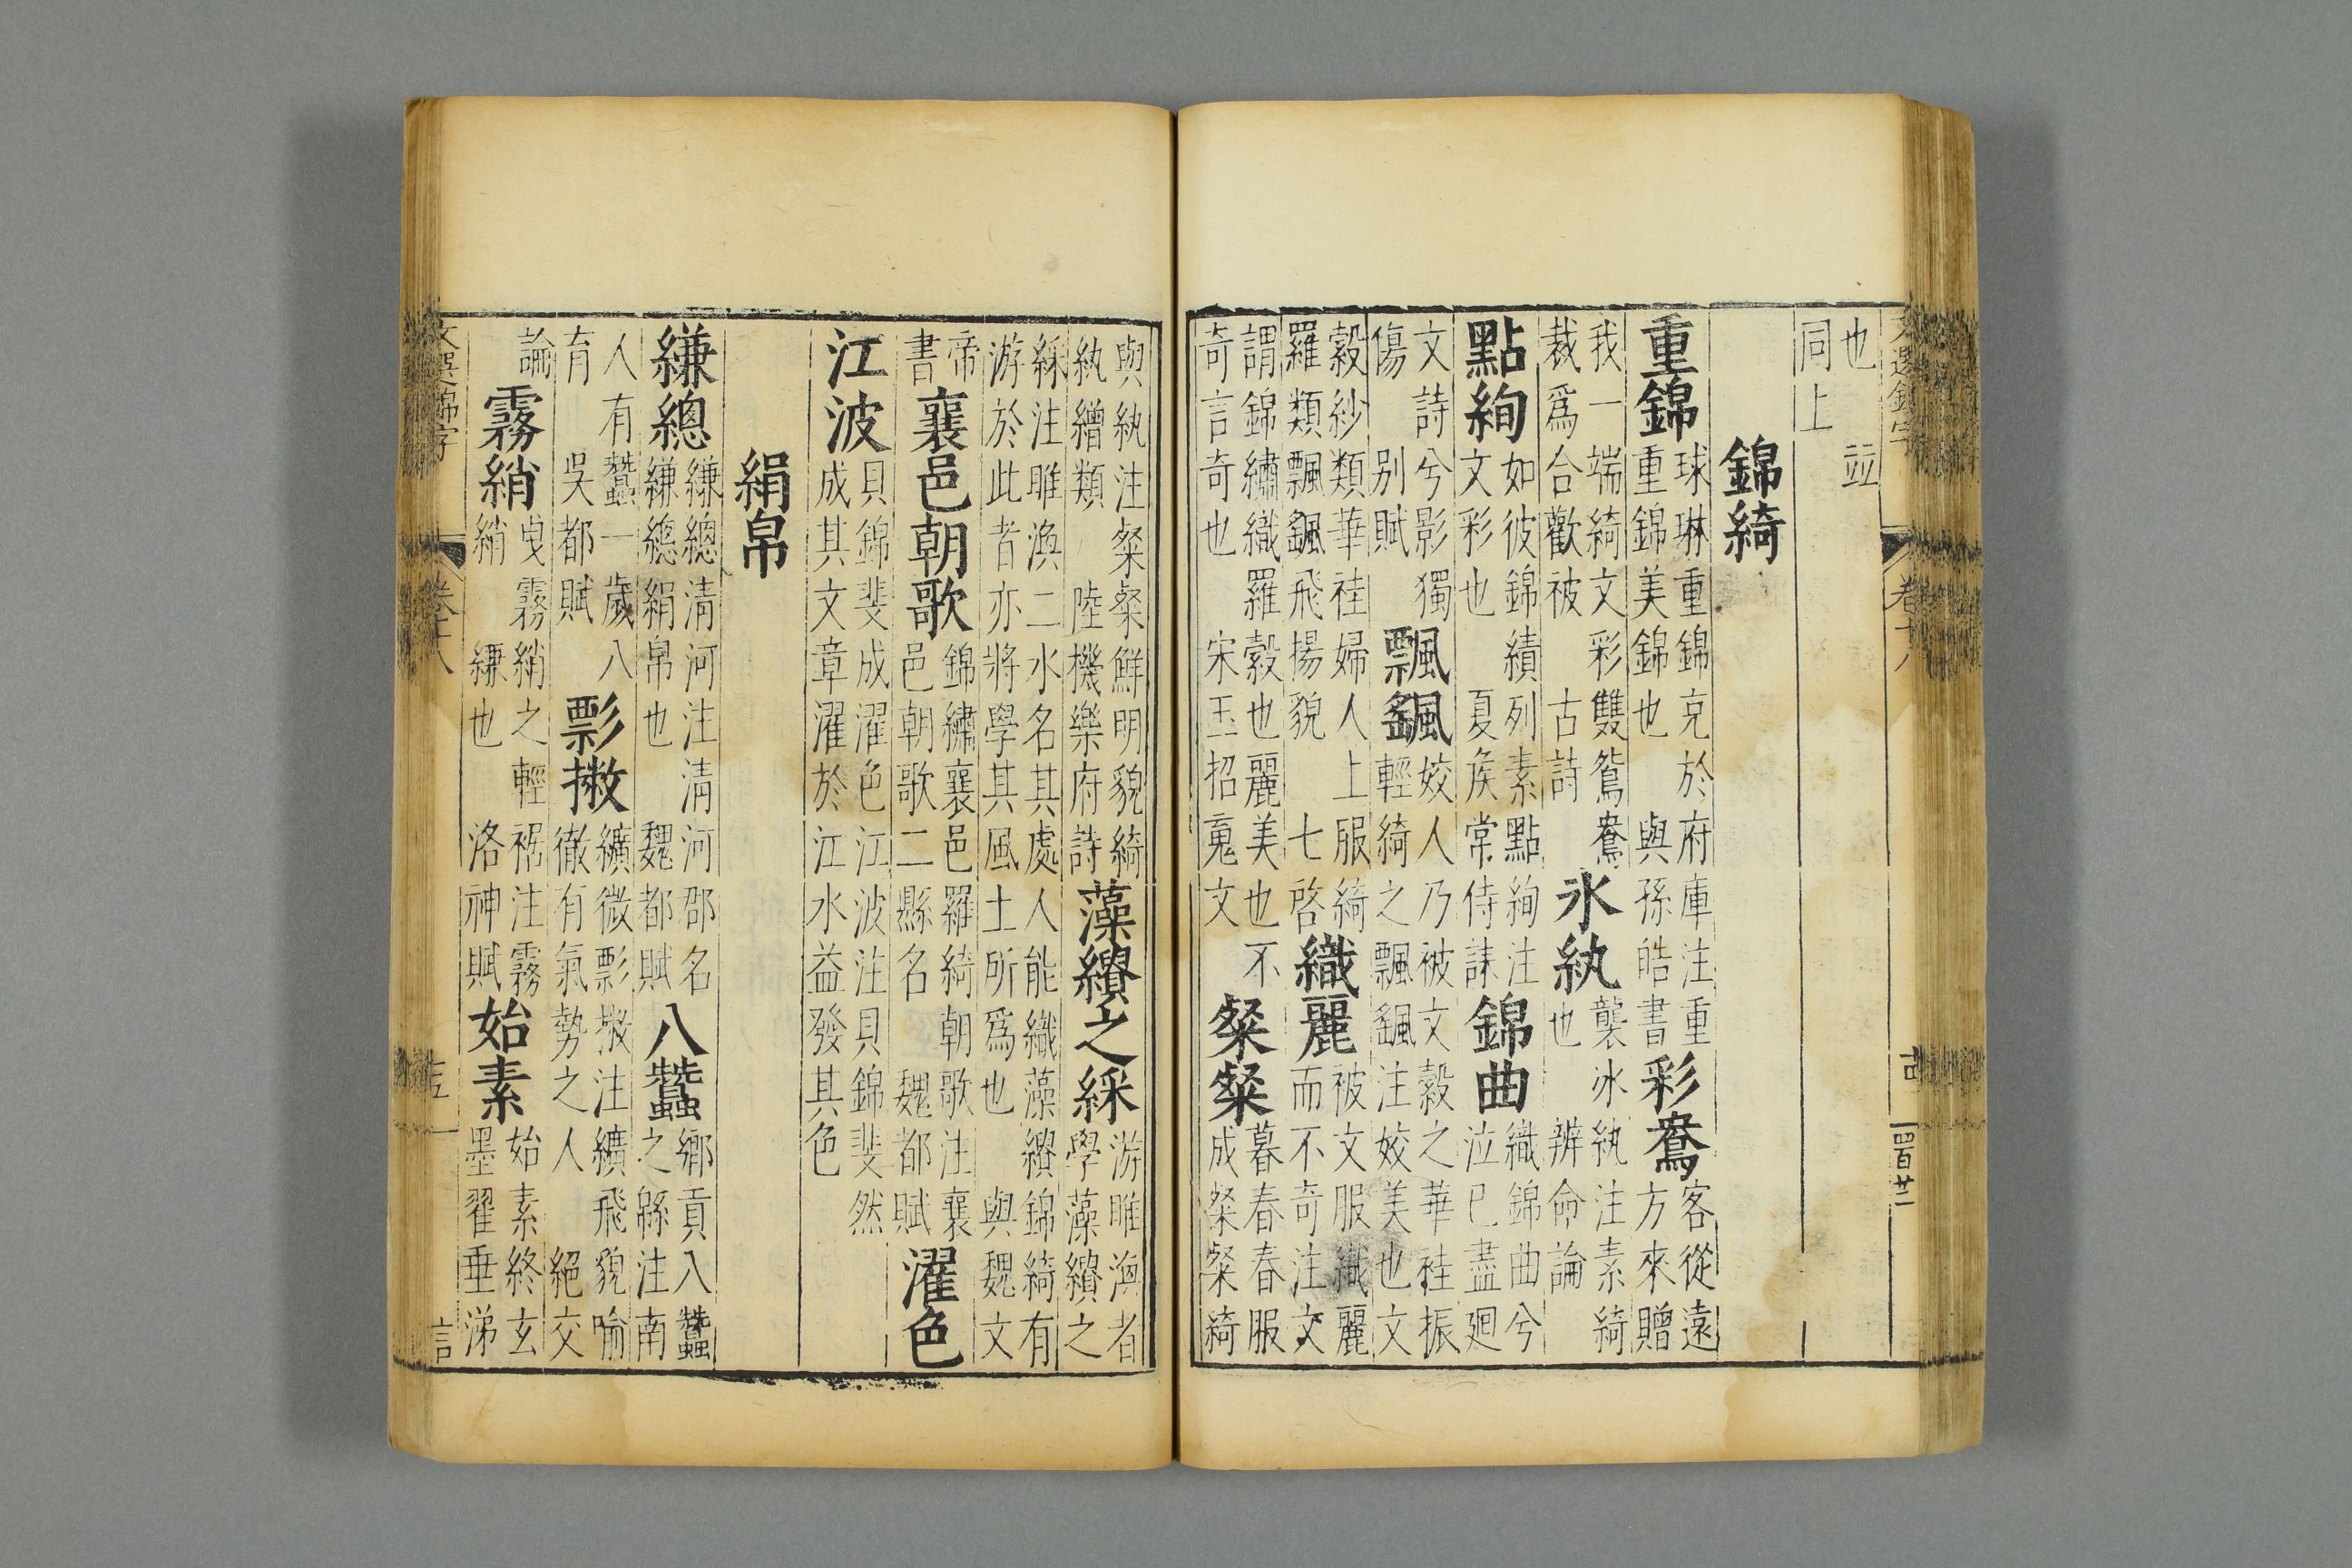 文選錦字 卷十八
四百廿二
也 並
同上
錦綺
重錦
球琳重錦充於府庫注重
重錦美錦也 與孫皓書
彩鴛
客從遠
方來贈
我一端綺文彩雙鴛鴦
裁爲合歡被 古詩
氷紈
襲冰紈注素綺
也 辨命論
點絢
如彼錦繢列素點絢注
文彩也 夏侯常侍誄
錦曲
織錦曲兮
泣已盡廻
文詩兮影獨
傷 别賦
飄颻
姣人乃被文縠之華袿振
輕綺之飄颻注姣美也文
縠紗類華袿婦人上服綺
羅類飄颻飛揚貌 七啓
織麗
被文服織麗
而不奇注文
謂錦繡織羅縠也麗美也不
奇言奇也 宋玉招䰟文
粲粲
暮春春服
成粲粲綺
與紈注粲粲鮮明貌綺
紈繒類 陸機樂府詩
藻繢之綵
游睢渙者
學藻繢之
綵注睢渙二水名其處人能織藻繢錦綺有
游於此者亦將學其風土所爲也 與魏文
帝
書
襄邑朝歌
錦繡襄邑羅綺朝歌注襄
邑朝歌二縣名 魏都賦
濯色
江波
貝錦斐成濯色江波注貝錦斐然
成其文章濯於江水益發其色
絹帛
縑總
縑總清河注清河郡名
縑總絹帛也 魏都賦
八蠶
鄉貢八蠶
之緜注南
人有蠶一歲八
育 吳都賦
彯撇
纊微彯撇注纊飛貌喻
徹有氣勢之人 絕交
論
霧綃
曳霧綃之輕裾注霧
綃 縑也 洛神賦
始素
始素終玄
墨翟垂涕
文選錦字 卷十八
言